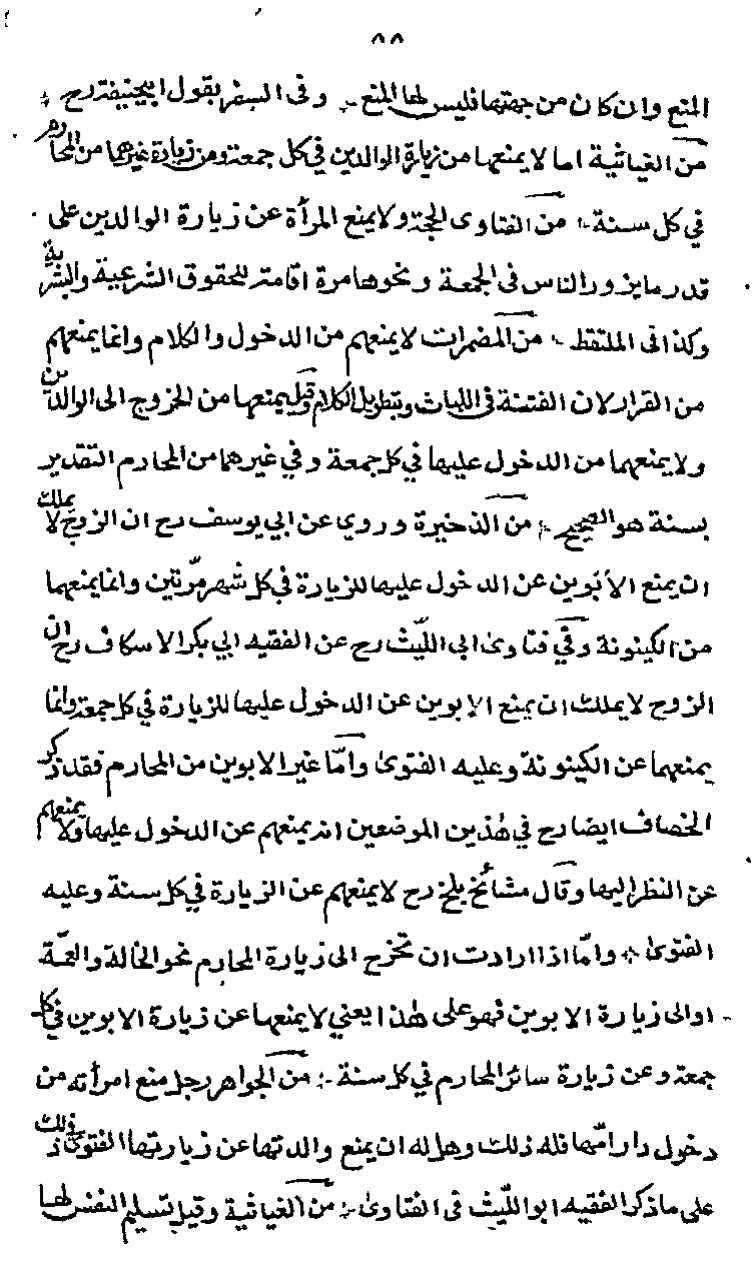 ٨٨
المنع وان كان من جهتها فليس لها المنع ؞ وفى السفر بقول ابيحنيفة رح ؞
من الغياثية اما لا يمنعها من زيارة الوالدين في كل جمعة ومن زيادة غيرهما من المحارم
في كل سنة ؞ من الفتاوى الحجة ولا يمنع المرأة عن زيارة الوالدين على
قدر ما يزور الناس فى الجمعة ونحوها مرة اقامة للحقوق الشرعية والبشرية
وكذا فى الملتقط ؞ من المضمرات لا يمنعهم من الدخول والكلام وانما يمنعهم
من القرار لان الفتنة فى اللباث وبتطويل الكلام وقيل يمنعها من الخروج الى الوالدين
ولا يمنعهما من الدخول عليها في كل جمعة وفي غيرهما من المحارم التقدير
بسنة هو الصحيح ؞ من الذخيرة وروي عن ابي يوسف رح ان الزوج لا يملك
ان يمنع الأبوين عن الدخول عليها للزيارة في كل شهر مرّتين وانما يمنعهما
من الكينونة وفي فتاوى ابى اللّيث رح عن الفقيه ابي بكر الاسكاف رح ان
الزوج لا يملك ان يمنع الابوين عن الدخول عليها للزيارة في كل جمعة وانما
يمنعهما عن الكينونة وعليه الفتوى وامّا غير الابوين من المحارم فقد ذكر
الخصاف ايضا رح في هذين الموضعين انه يمنعهم عن الدخول عليها ولا يمنعهم
عن النظر اليها وقال مشائخ بلخ رح لا يمنعهم عن الزيارة في كل سنة وعليه
الفتوى ؞ وامّا اذا ارادت ان تخرج الى زيارة المحارم نحو الخالة والعمّة
او الى زيارة الابوين فهو على هذا يعني لا يمنعها عن زيارة الابوين في كل
جمعة وعن زيارة سائر المحارم في كل سنة ؞ من الجواهر رجل منع امرأته من
دخول دار امّها فله ذلك وهل له ان يمنع والدتها عن زيارتها الفتوى في ذلك
على ما ذكر الفقيه ابو اللّيث فى الفتاوى ؞ من الغياثية وقيل تسليم النفس لها